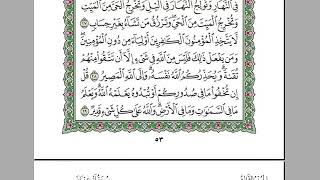 فِي النَّهَارِ وَتُولِجُ النَّهَارَ فِي الَّيْلِ وَتُخْرِجُ الْحَيَّ مِنَ الْمَيِّتِ
وَتُخْرِجُ الْمَيِّتَ مِنَ الْحَيِّ وَتَرْزُقُ مَن تَشَاءُ بِغَيْرِ حِسَابٍ ٢٧
لَّا يَتَّخِذِ الْمُؤْمِنُونَ الْكَافِرِينَ أَوْلِيَاءَ مِن دُونِ الْمُؤْمِنِينَ
وَمَن يَفْعَلْ ذَٰلِكَ فَلَيْسَ مِنَ اللَّهِ فِي شَيْءٍ إِلَّا أَن تَتَّقُوا مِنْهُمْ
تُقَاةً وَيُحَذِّرُكُمُ اللَّهُ نَفْسَهُ وَإِلَى اللَّهِ الْمَصِيرُ ٢٨ قُلْ
إِن تُخْفُوا مَا فِي صُدُورِكُمْ أَوْ تُبْدُوهُ يَعْلَمْهُ اللَّهُ وَيَعْلَمُ
مَا فِي السَّمَاوَاتِ وَمَا فِي الْأَرْضِ وَاللَّهُ عَلَىٰ كُلِّ شَيْءٍ قَدِيرٌ ٢٩
٥٣